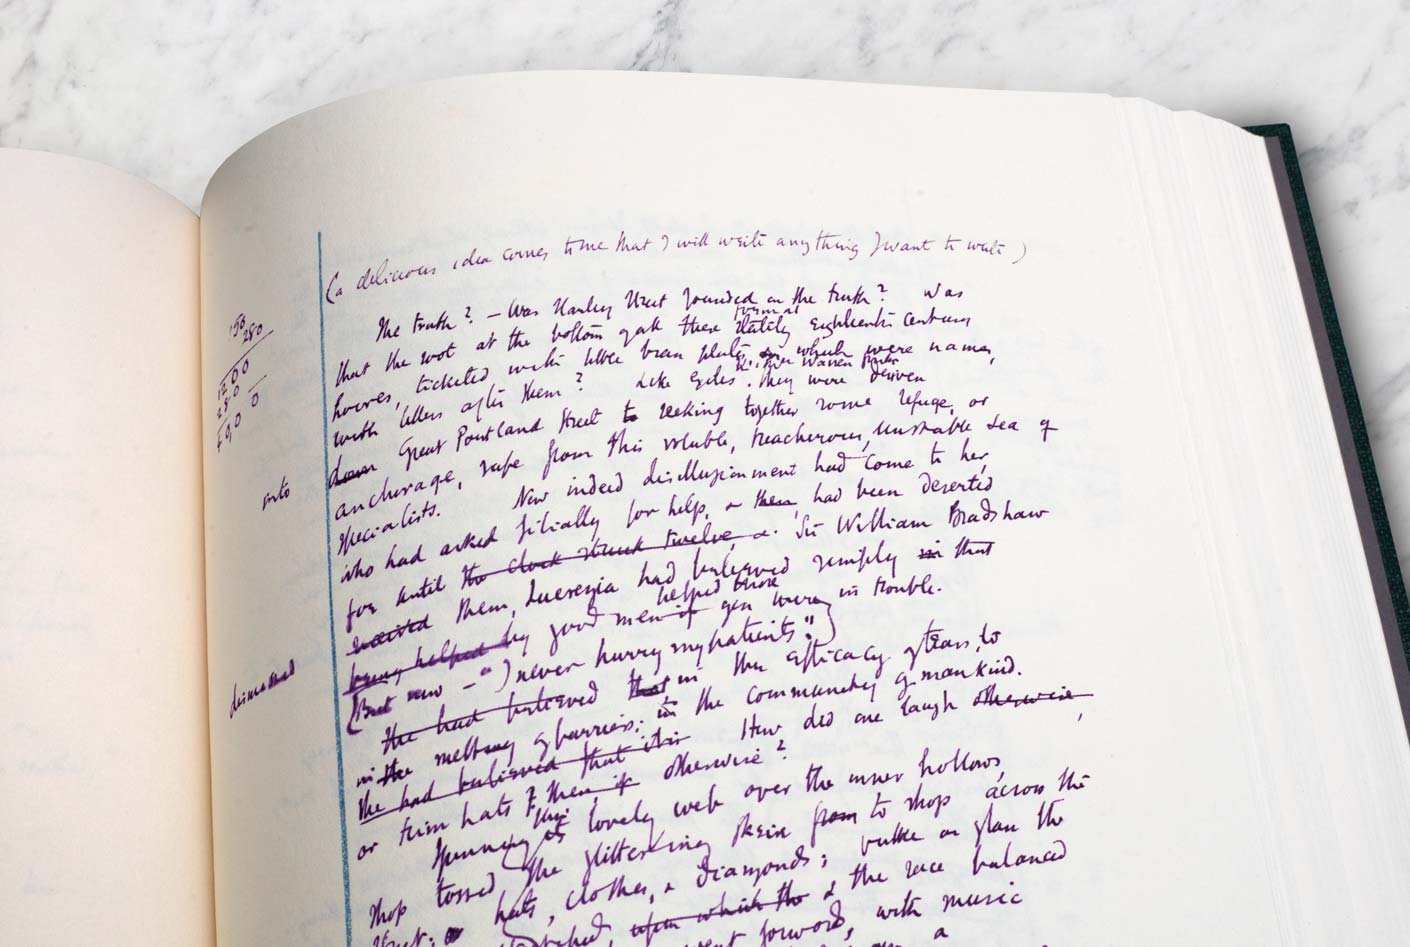 (a delicious idea comes to me that I will write anything I want to write)
150
280
The truth? — Was Harley Street founded on the truth? Was
that the root at the bottom of all these stately eighteenth century
1200
280
houses, ticketed with little brass plates, on which were names,
with letters after them? Like exiles. they were driven
down Great Portland Street to seeking together some refuge, or
anchorage, safe from this voluble, treacherous, unstable sea of
into
specialists. Now indeed disillusionment had come to her,
who had asked filially for help, & then, had been deserted
for until the clock struck twelve, &. Sir William Bradshaw
received them, Lucrezia had believed simply in that
helped those
being helped by good men if you were in trouble.
dismissed
(But now — "I never hurry my patients".)
She had believed that in the efficacy of tears, to
in the melting of barriers; in the community of mankind.
She had believed that it is How did one laugh otherwise,
or trim hats & then, if otherwise?
Spunning its lovely web over the inner hollows,
this
tossed the glittering skein from to shop across the
shop hats, clothes, & diamonds; on glass the
Street; upon which the & the race balanced
went forward, with music
a